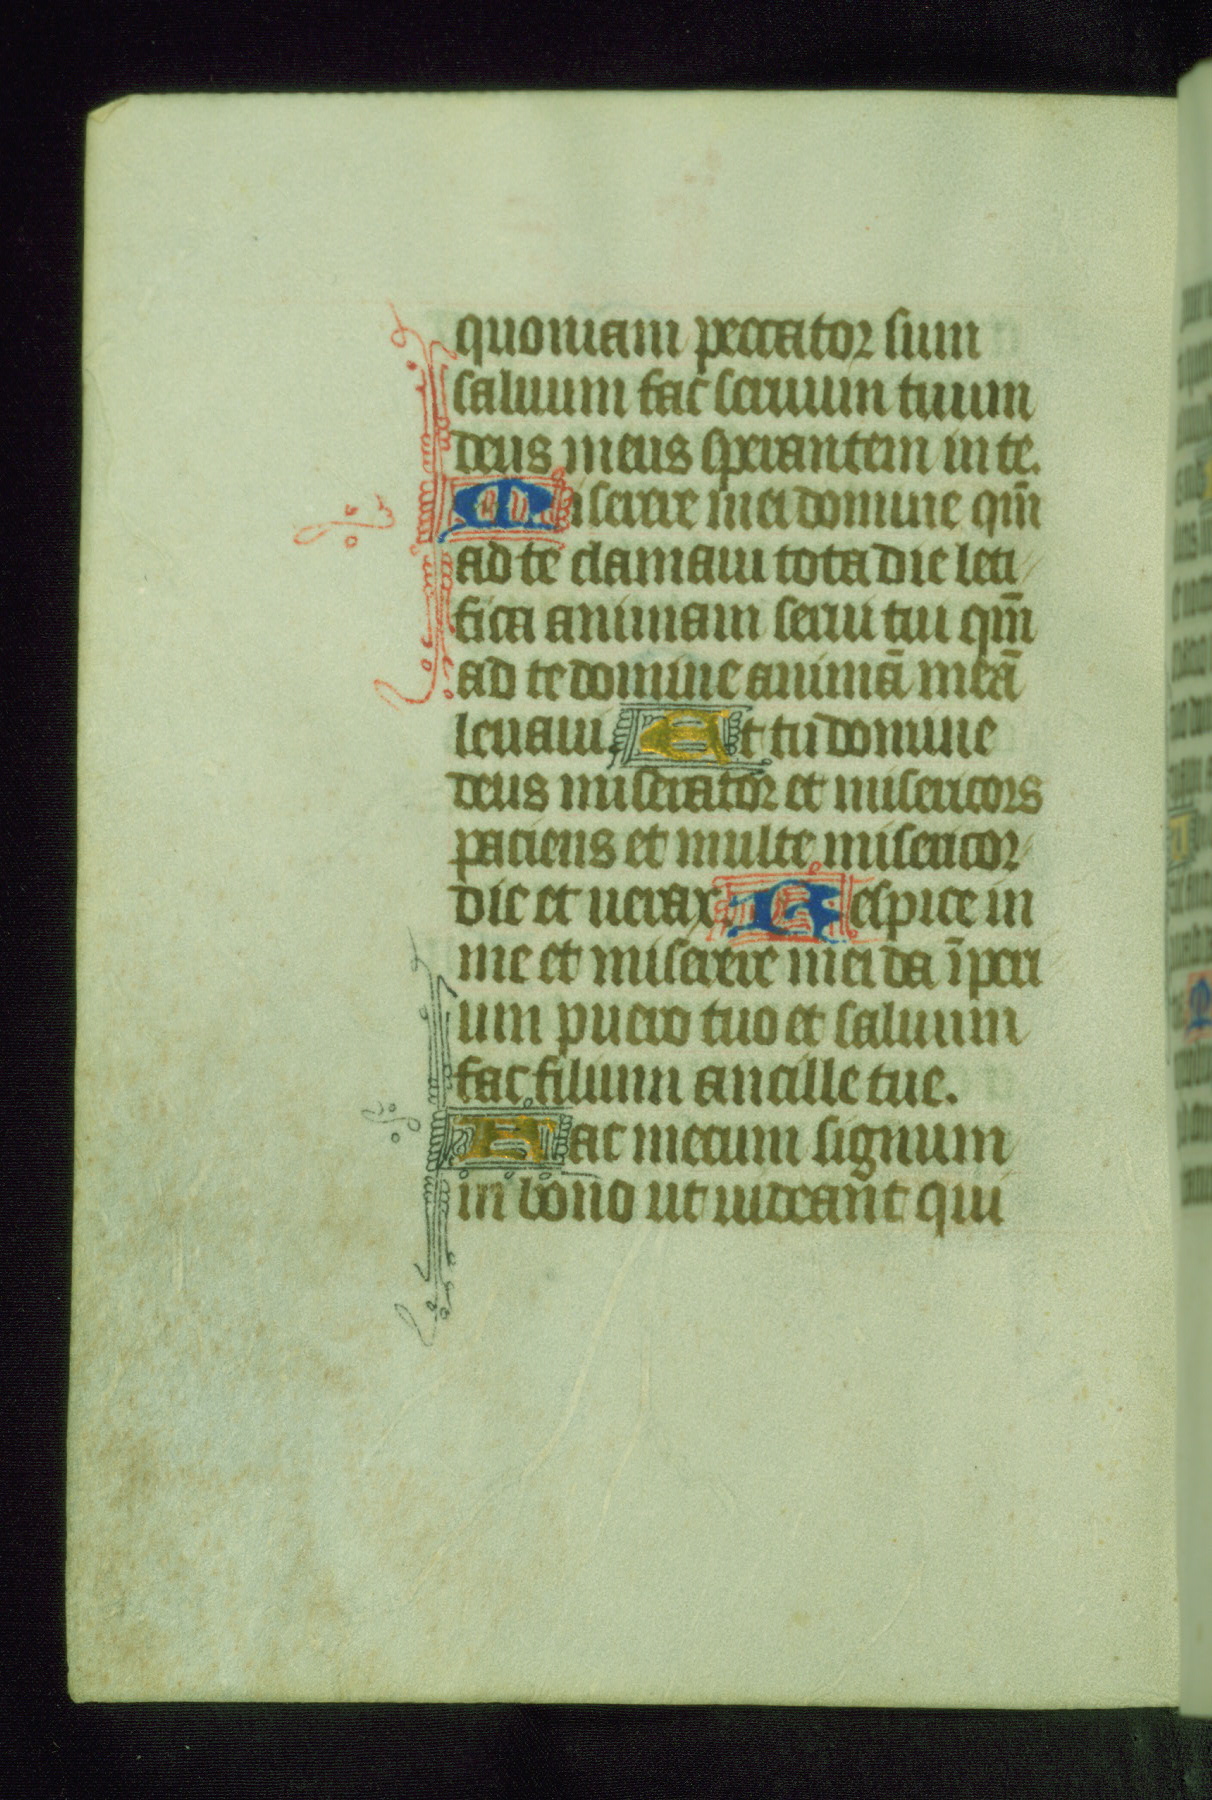 quoniam peccator sum
saluum fac seruum tuum
deus meus sperantem in te.
Miserere mei domine qm̄
ad te clamaui tota die leti
fica animam serui tui qm̄
ad te domine animā meā
leuaui. Et tu domine
deus miserator et misericors
paciens et multe misericor
die et uerax. Respice in
me et miserere mei da īperi
um puero tuo et saluum
fac filium ancille tue.
Fac mecum signum
in bono ut uideant qui